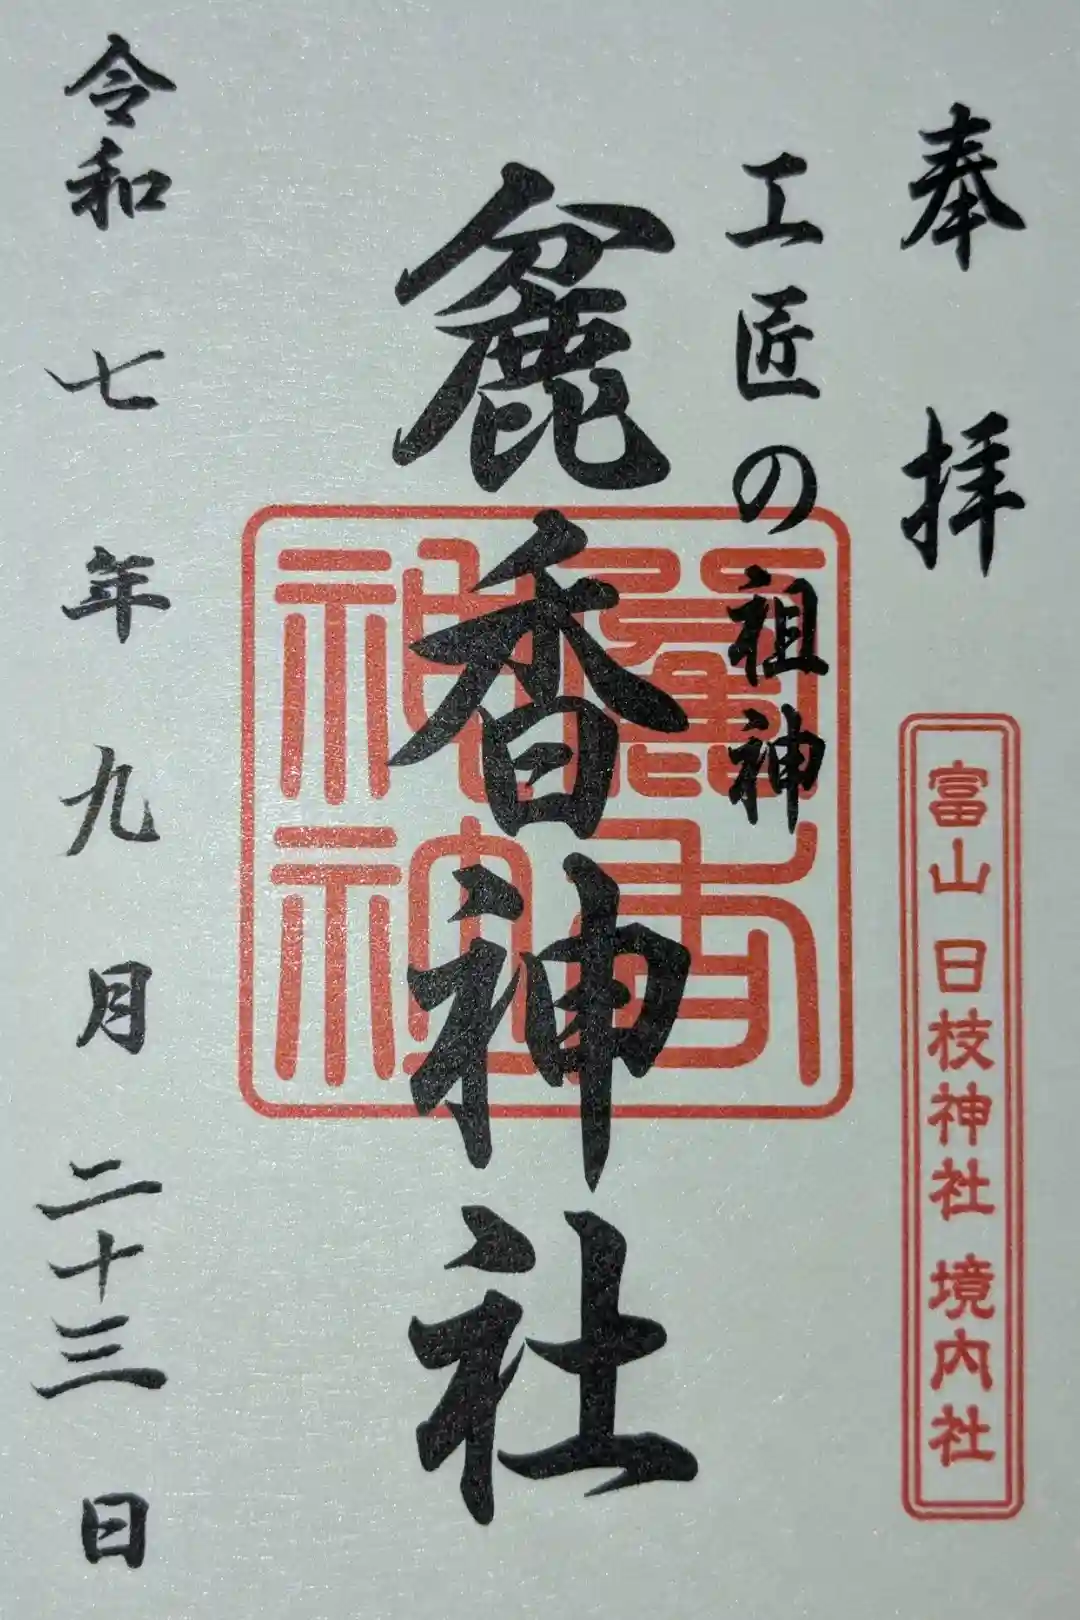 奉拝
富山 日枝神社 境内社
工匠の祖神
麁香神社
令和七年九月二十三日